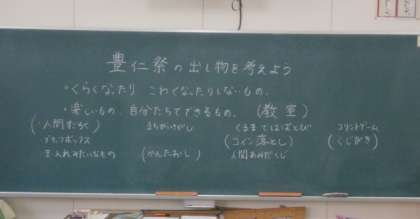 豊仁祭の出し物を考えよう
・くらくなったり こわくなったりしないもの、
・楽しいもの、自分たちでできるもの、(教室)
(人間すごろく まちがいさがし くるまではばとび コリントゲーム
ブラックボックス (コイン落とし) (くじびき)
玉入れみたいなもの (かんたおし) 人間あみだくじ